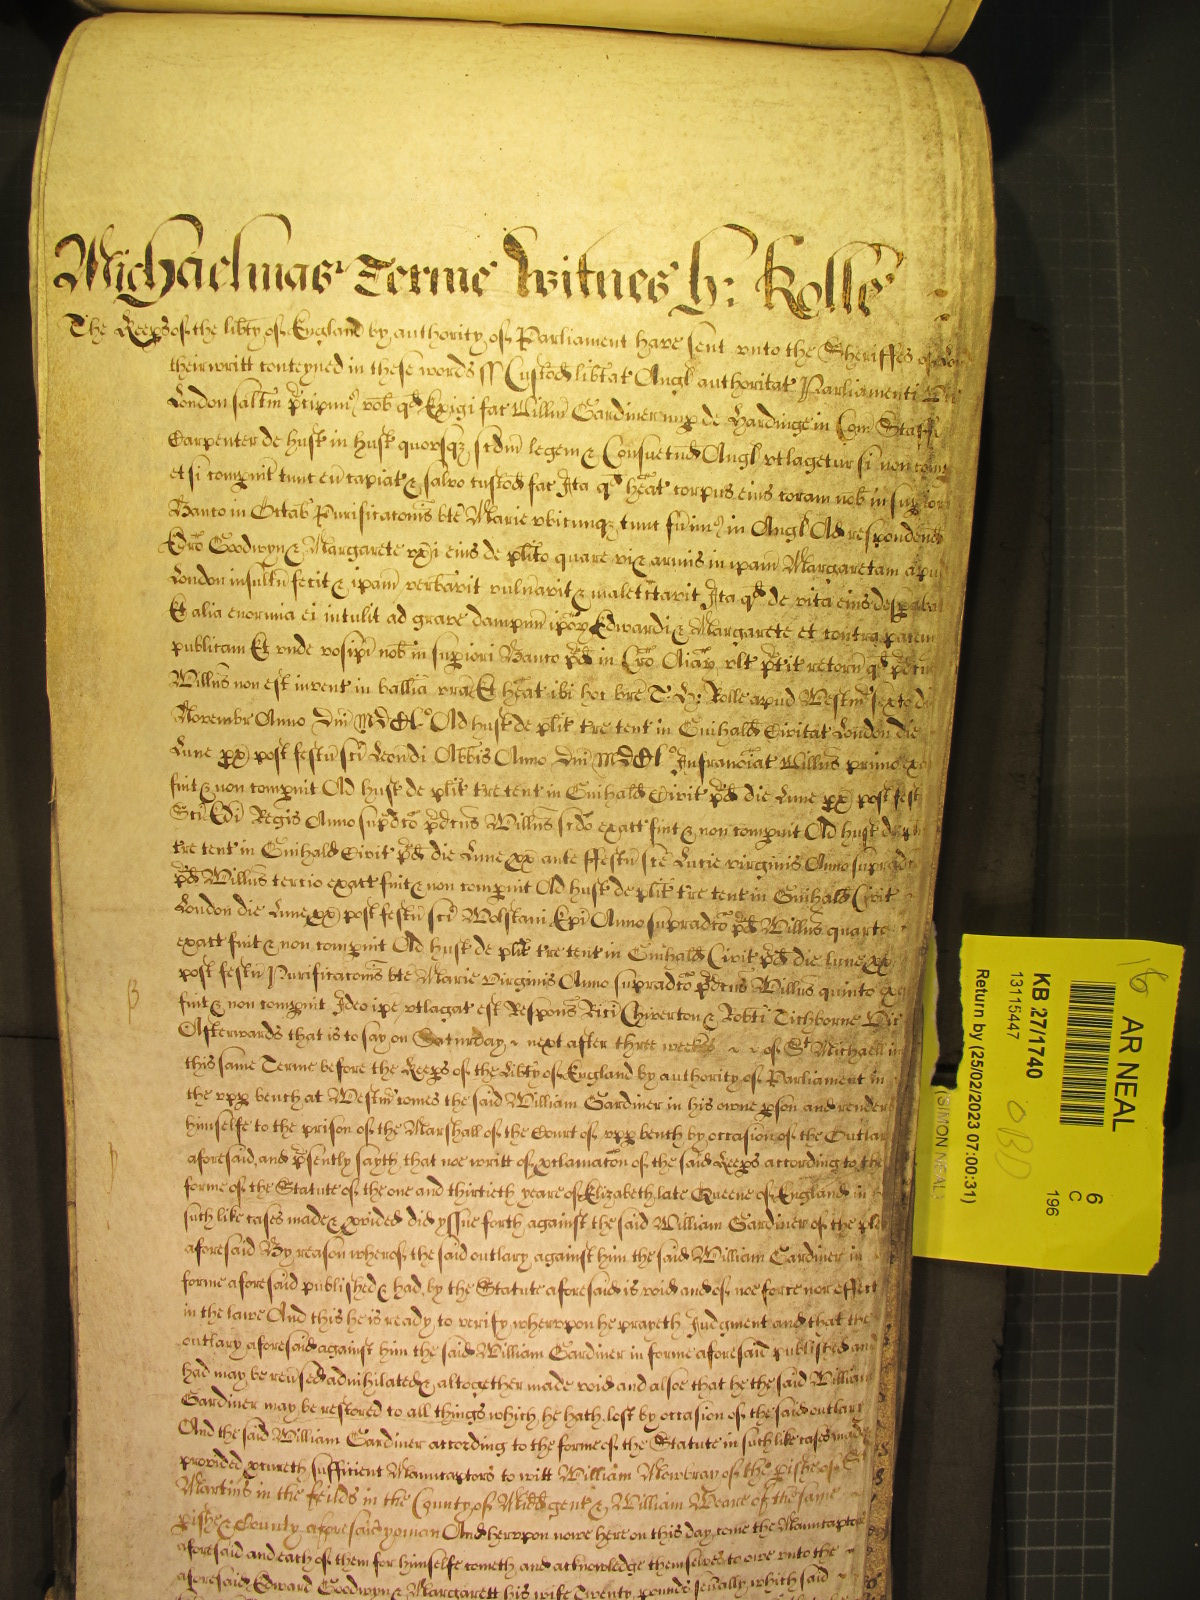 Michaelmas Terme Witnes H: Rolle
The Keeps of the libty of England by authority of Parliament have sent unto the Sheriffes of
their writt conteyned in these words ss Custod libtat Angl authoritat Parliamenti
London saltm pcipim vob qd Exigi fac Willm Gardiner nup de Hardinge in Com Staff
Carpenter de hust in hust quousqz scdm legem & Consuetud Angl utlagetur si non
et si compuit tunc eu capiat & salvo custod fac Ita qd heat corpus eius coram nob in
Banco in Octab Purificatonis bte Marie ubicunqz tunc fuim in Angl Ad respondend
Edro Goodwyn & Margarete uxi eius de plito quare vi & armis in ipam Margaretam apu
London insultu fecit & ipam verbavit vulnavit & maletctavit Ita qd de vita eius despabat
Et alia enormia ei intulit ad grave dampnu ipor Edwardi & Margarete et contra pacem
publicam Et unde vos in supiori Banco pd in ult retorn qd
Willus non est invent in balliva vra Et heat ibi hoc bre T: H: Rolle apud Westm sexto di
Novembr Anno Dni MDCL Ad hust de plit tre tent in Guihald Civitat London die
Lune px post festu sci Leondi Abbis Anno Dni MDCL Willus primo exa
fuit & non compuit Ad hust de plit tre tent in Guihald Civit pd die Lune px post fest
Sci Edi Regis Anno supdco pdcus Willus scdo exact fuit & non compuit Ad hust de
tre tent in Guihald Civit pd die Lune px ante ffestu sce Lucie virginis Anno supradco
pd Willus tercio exact fuit & non compuit Ad hust de plit tre tent in Guihald Civit
London die Lune px post festu sci Wolstani Epi Anno supradco pd Willus quarto
exact fuit & non compuit Ad hust de plit tre tent in Guihald Civit pd die lune px
post festu Purificatonis bte Marie Virginis Anno supradco pdcus Willus quinto
fuit & non compuit Ideo ipe utlagat est Respons Rici Chiverton & Robti Tichborne Vic
B
Afterwards that is to say on Saturday next after three weekes of St Michaell in
this same Terme before the Keeps of the Libty of England by authority of Parliament in
the upp bench at Westm comes the said William Gardiner in his owne pson and renders
himselfe to the prison of the Marshall of the Court of upp bench by occasion of the Outlar
aforesaid and psently sayth that noe writt of pclamacon of the said Keeps according to the
forme of the Statute of the one and thirtieth yeare of Elizabeth late Queene of England in
such like cases made & pvided did yssue forth against the said William Gardiner of the ple
aforesaid By reason wherof the said outlary against him the said William Gardiner in
forme aforesaid published & had by the Statute aforesaid is void and of noe force nor effect
in the lawe And this he is ready to verify wherupon he prayeth Judgment and that the
outlary aforesaid against him the said William Gardiner in forme aforesaid published and
had may be reused adnihilated & altogether made void and alsoe that he the said William
Gardiner may be restored to all things which he hath lost by occasion of the said outlary
And the said William Gardiner according to the forme of the Statute in such like cases made
provided pcureth sufficient Manucaptors to witt William Mowbray of the pishe of St
Martins in the feilds in the County of Midd gent & William Weare of the same
pishe & County aforesaid yoman And herupon nowe here on this day come the Manucaptors
aforesaid and each of them for himselfe cometh and acknowledge themselves to owe unto the
aforesaid Edward Goodwyn & Margarett his wife Twenty pounds seually which said
16
AR NEAL
KB 27/1740
13115447
Return by (25/02/2023 07:00:31)
6
C
196
(SIMON NEAL)